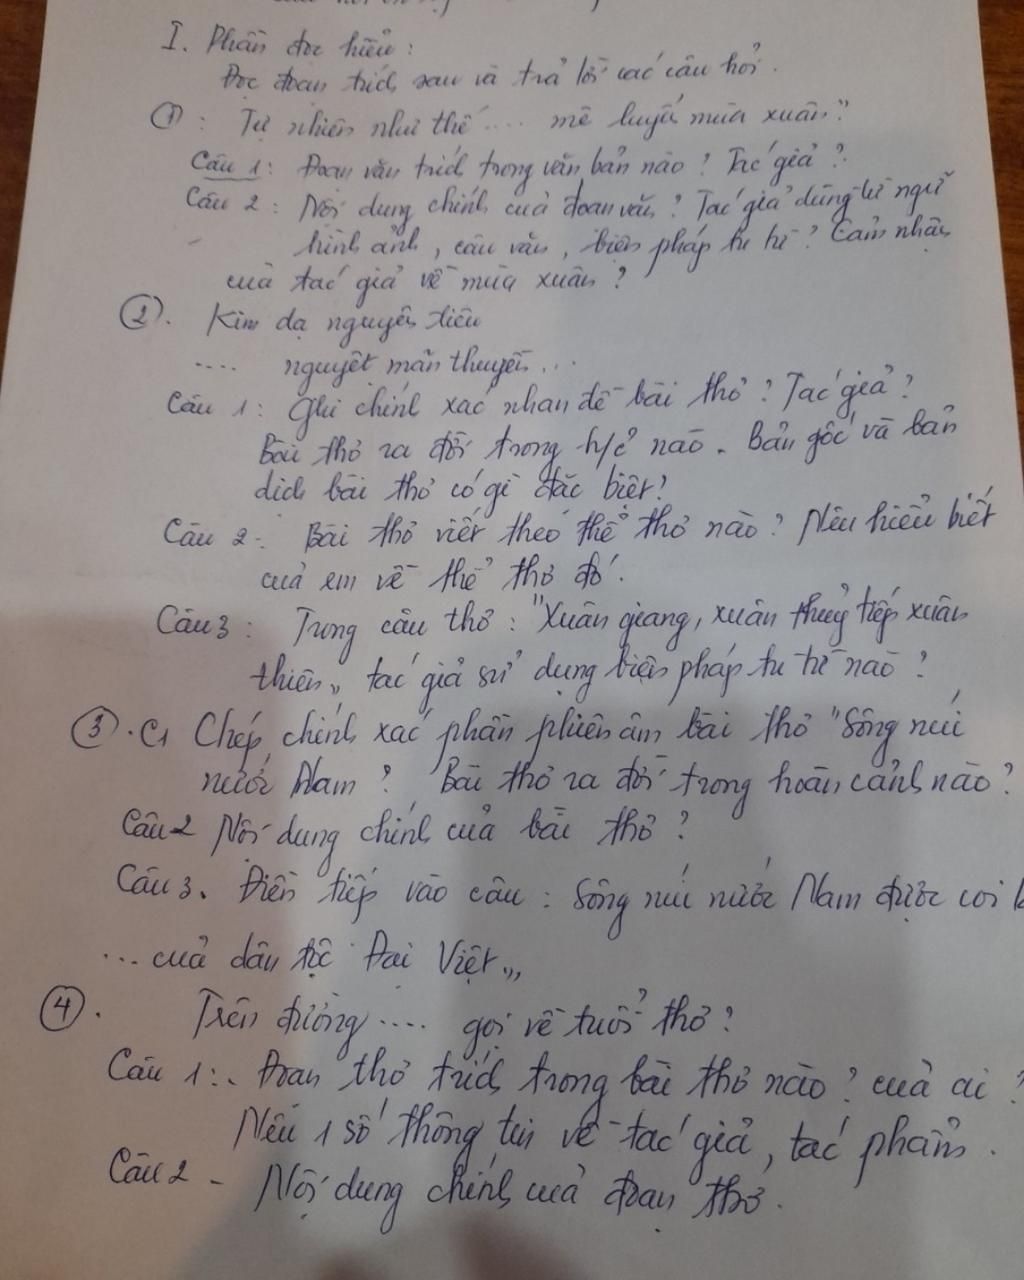 I. Phần đọc hiểu:
Đọc đoạn trích sau và trả lời các câu hỏi.
①: Tự nhiên như thế .... mê luyến mùa xuân"
Câu 1: Đoạn văn trích trong văn bản nào? Tác giả?
Câu 2: Nội dung chính của đoạn văn? Tác giả dùng từ ngữ
hình ảnh, câu văn, biện pháp tu từ? Cảm nhận
của tác giả về mùa xuân?
②. Kim dạ nguyên tiêu
.... nguyệt mãn thuyền...
Câu 1: Ghi chính xác nhan đề bài thơ? Tác giả?
Bài thơ ra đời trong h/c nào. Bản gốc và bản
dịch bài thơ có gì đặc biệt?
Câu 2: Bài thơ viết theo thể thơ nào? Nêu hiểu biết
của em về thể thơ đó.
Câu 3: Trong câu thơ: "Xuân giang, xuân thuỷ tiếp xuân
thiên" tác giả sử dụng biện pháp tu từ nào?
③. C1 Chép chính xác phần phiên âm bài thơ "Sông núi
nước Nam? Bài thơ ra đời trong hoàn cảnh nào?
Câu 2 Nội dung chính của bài thơ?
Câu 3. Điền tiếp vào câu: Sông núi nước Nam được coi
... của dân tộc Đại Việt"
④. Trên đường .... gọi về tuổi thơ?
Câu 1: Đoạn thơ trích trong bài thơ nào? của ai?
Nêu 1 số thông tin về tác giả, tác phẩm.
Câu 2 - Nội dung chính của đoạn thơ.